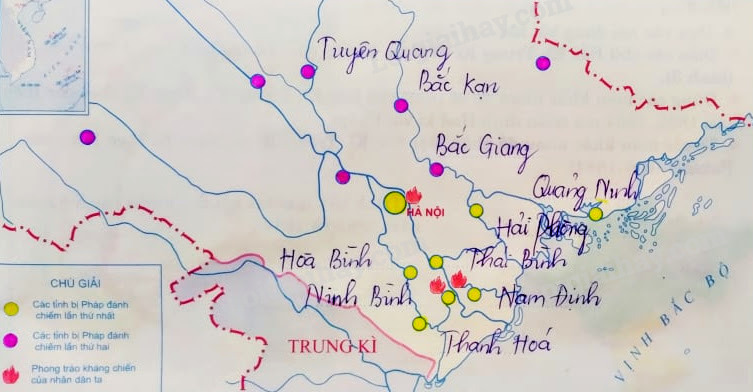 Tuyên Quang
Bắc Kạn
Bắc Giang
Quảng Ninh
HÀ NỘI
Hải Phòng
Hoà Bình
Thái Bình
Ninh Bình
Nam Định
Thanh Hoá
TRUNG KÌ
VỊNH BẮC BỘ
CHÚ GIẢI
Các tỉnh bị Pháp đánh
chiếm lần thứ nhất
Các tỉnh bị Pháp đánh
chiếm lần thứ hai
Phong trào kháng chiến
của nhân dân ta